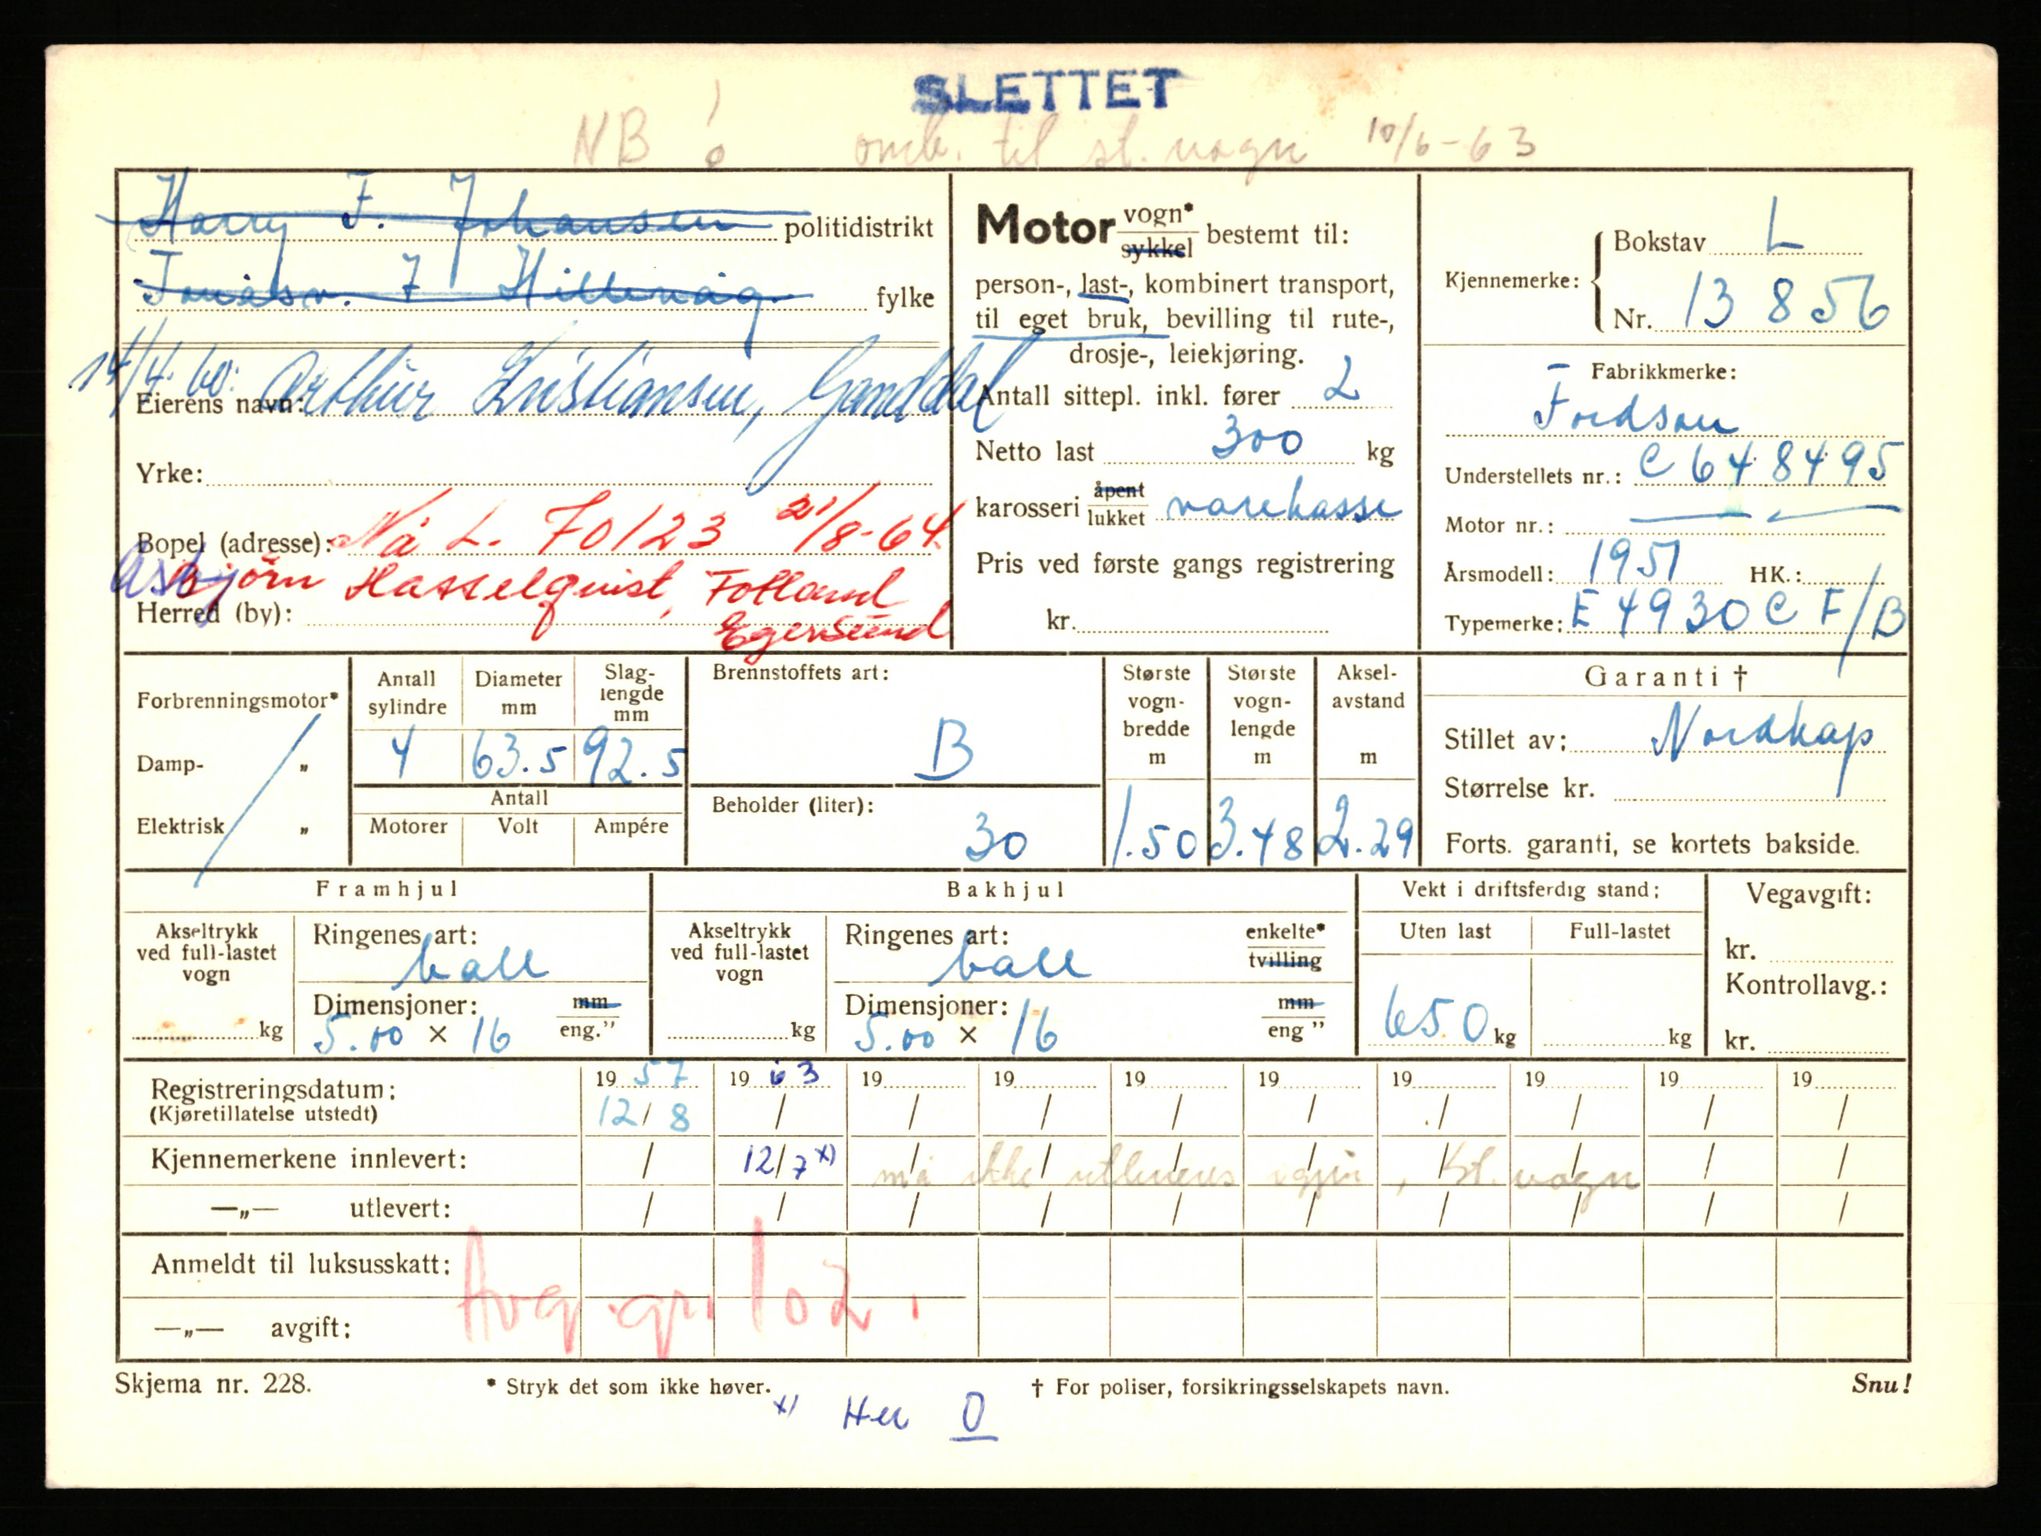 SLETTET
NB! omb. til st. vogn 10/6-63
Harry F. Johansen politidistrikt
7 Hillevåg fylke
14/4.60: Arthur Kristiansen, Ganddal
Eierens navn:
Yrke:
Bopel (adresse): Nå L. 70123 21/8-64
Asbjörn Hasselquist, Fotland
Herred (by): Egersund
Motor vogn* sykkel bestemt til:
person-, last-, kombinert transport,
til eget bruk, bevilling til rute-,
drosje-, leiekjøring.
Antall sittepl. inkl. fører 2
Netto last 300 kg
karosseri åpent lukket varekasse
Pris ved første gangs registrering
kr.
Kjennemerke: Bokstav L
Nr. 13856
Fabrikkmerke:
Fordson
Understellets nr.: C648495
Motor nr.: —"—
Årsmodell: 1951 HK.:
Typemerke: E4930CF/B
Forbrenningsmotor*
Damp- "
Elektrisk "
Antall sylindre Diameter mm Slag-lengde mm
4 63.5 92.5
Antall
Motorer Volt Ampére
Brennstoffets art:
B
Beholder (liter):
30
Største vogn-bredde m Største vogn-lengde m Aksel-avstand m
1.50 3.48 2.29
Garanti †
Stillet av: Nordkap
Størrelse kr.
Forts. garanti, se kortets bakside.
Framhjul
Akseltrykk ved full-lastet vogn kg
Ringenes art:
ball
Dimensjoner: mm
5.00 × 16 eng."
Bakhjul
Akseltrykk ved full-lastet vogn kg
Ringenes art: enkelte*
ball tvilling
Dimensjoner: mm
5.00 × 16 eng "
Vekt i driftsferdig stand:
Uten last Full-lastet
650 kg kg
Vegavgift:
kr.
Kontrollavg.:
kr.
Registreringsdatum: 1957 1963 19 19 19 19 19 19 19 19
(Kjøretillatelse utstedt) 12/8 / / / / / / / / /
Kjennemerkene innlevert: / 12/7 x) må ikke utleveres igjen, st. vogn
—"— utlevert: / / / / / / / / / /
Anmeldt til luksusskatt:
Avg. gr. 102.
—"— avgift:
Skjema nr. 228. * Stryk det som ikke høver. † For poliser, forsikringsselskapets navn. Snu!
x) Her O